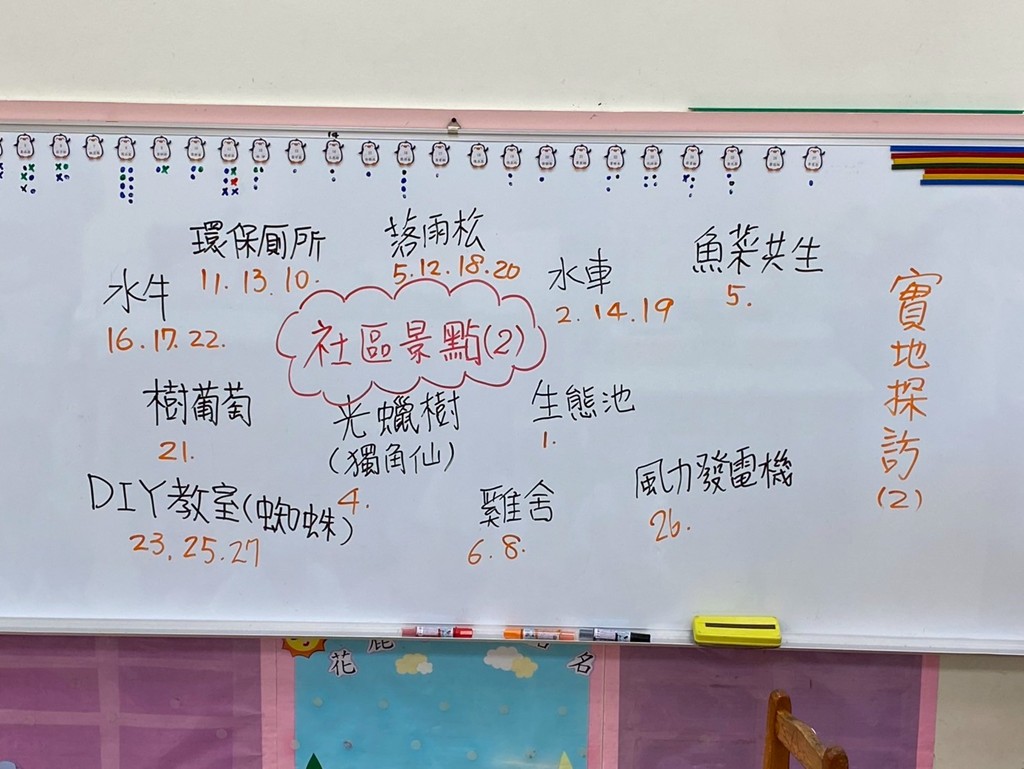 14
環保厠所
11. 13. 10.
落雨松
5. 12. 18. 20
水車
2. 14. 19
魚菜共生
5.
水牛
16. 17. 22.
社區景點(2)
實地探訪
(2)
樹葡萄
21.
光蠟樹
(獨角仙)
4.
生態池
1.
DIY教室(蜘蛛)
23. 25. 27
雞舍
6. 8.
風力發電機
26.
花
鹿
名